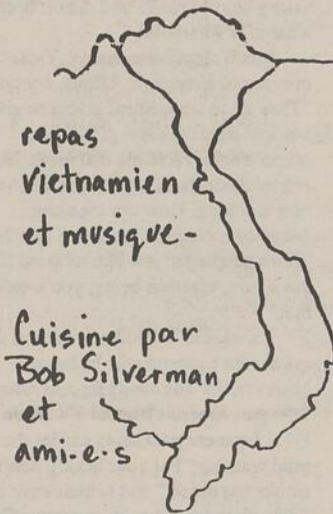 repas
vietnamien
et musique-
Cuisine par
Bob Silverman
et
ami-e-s